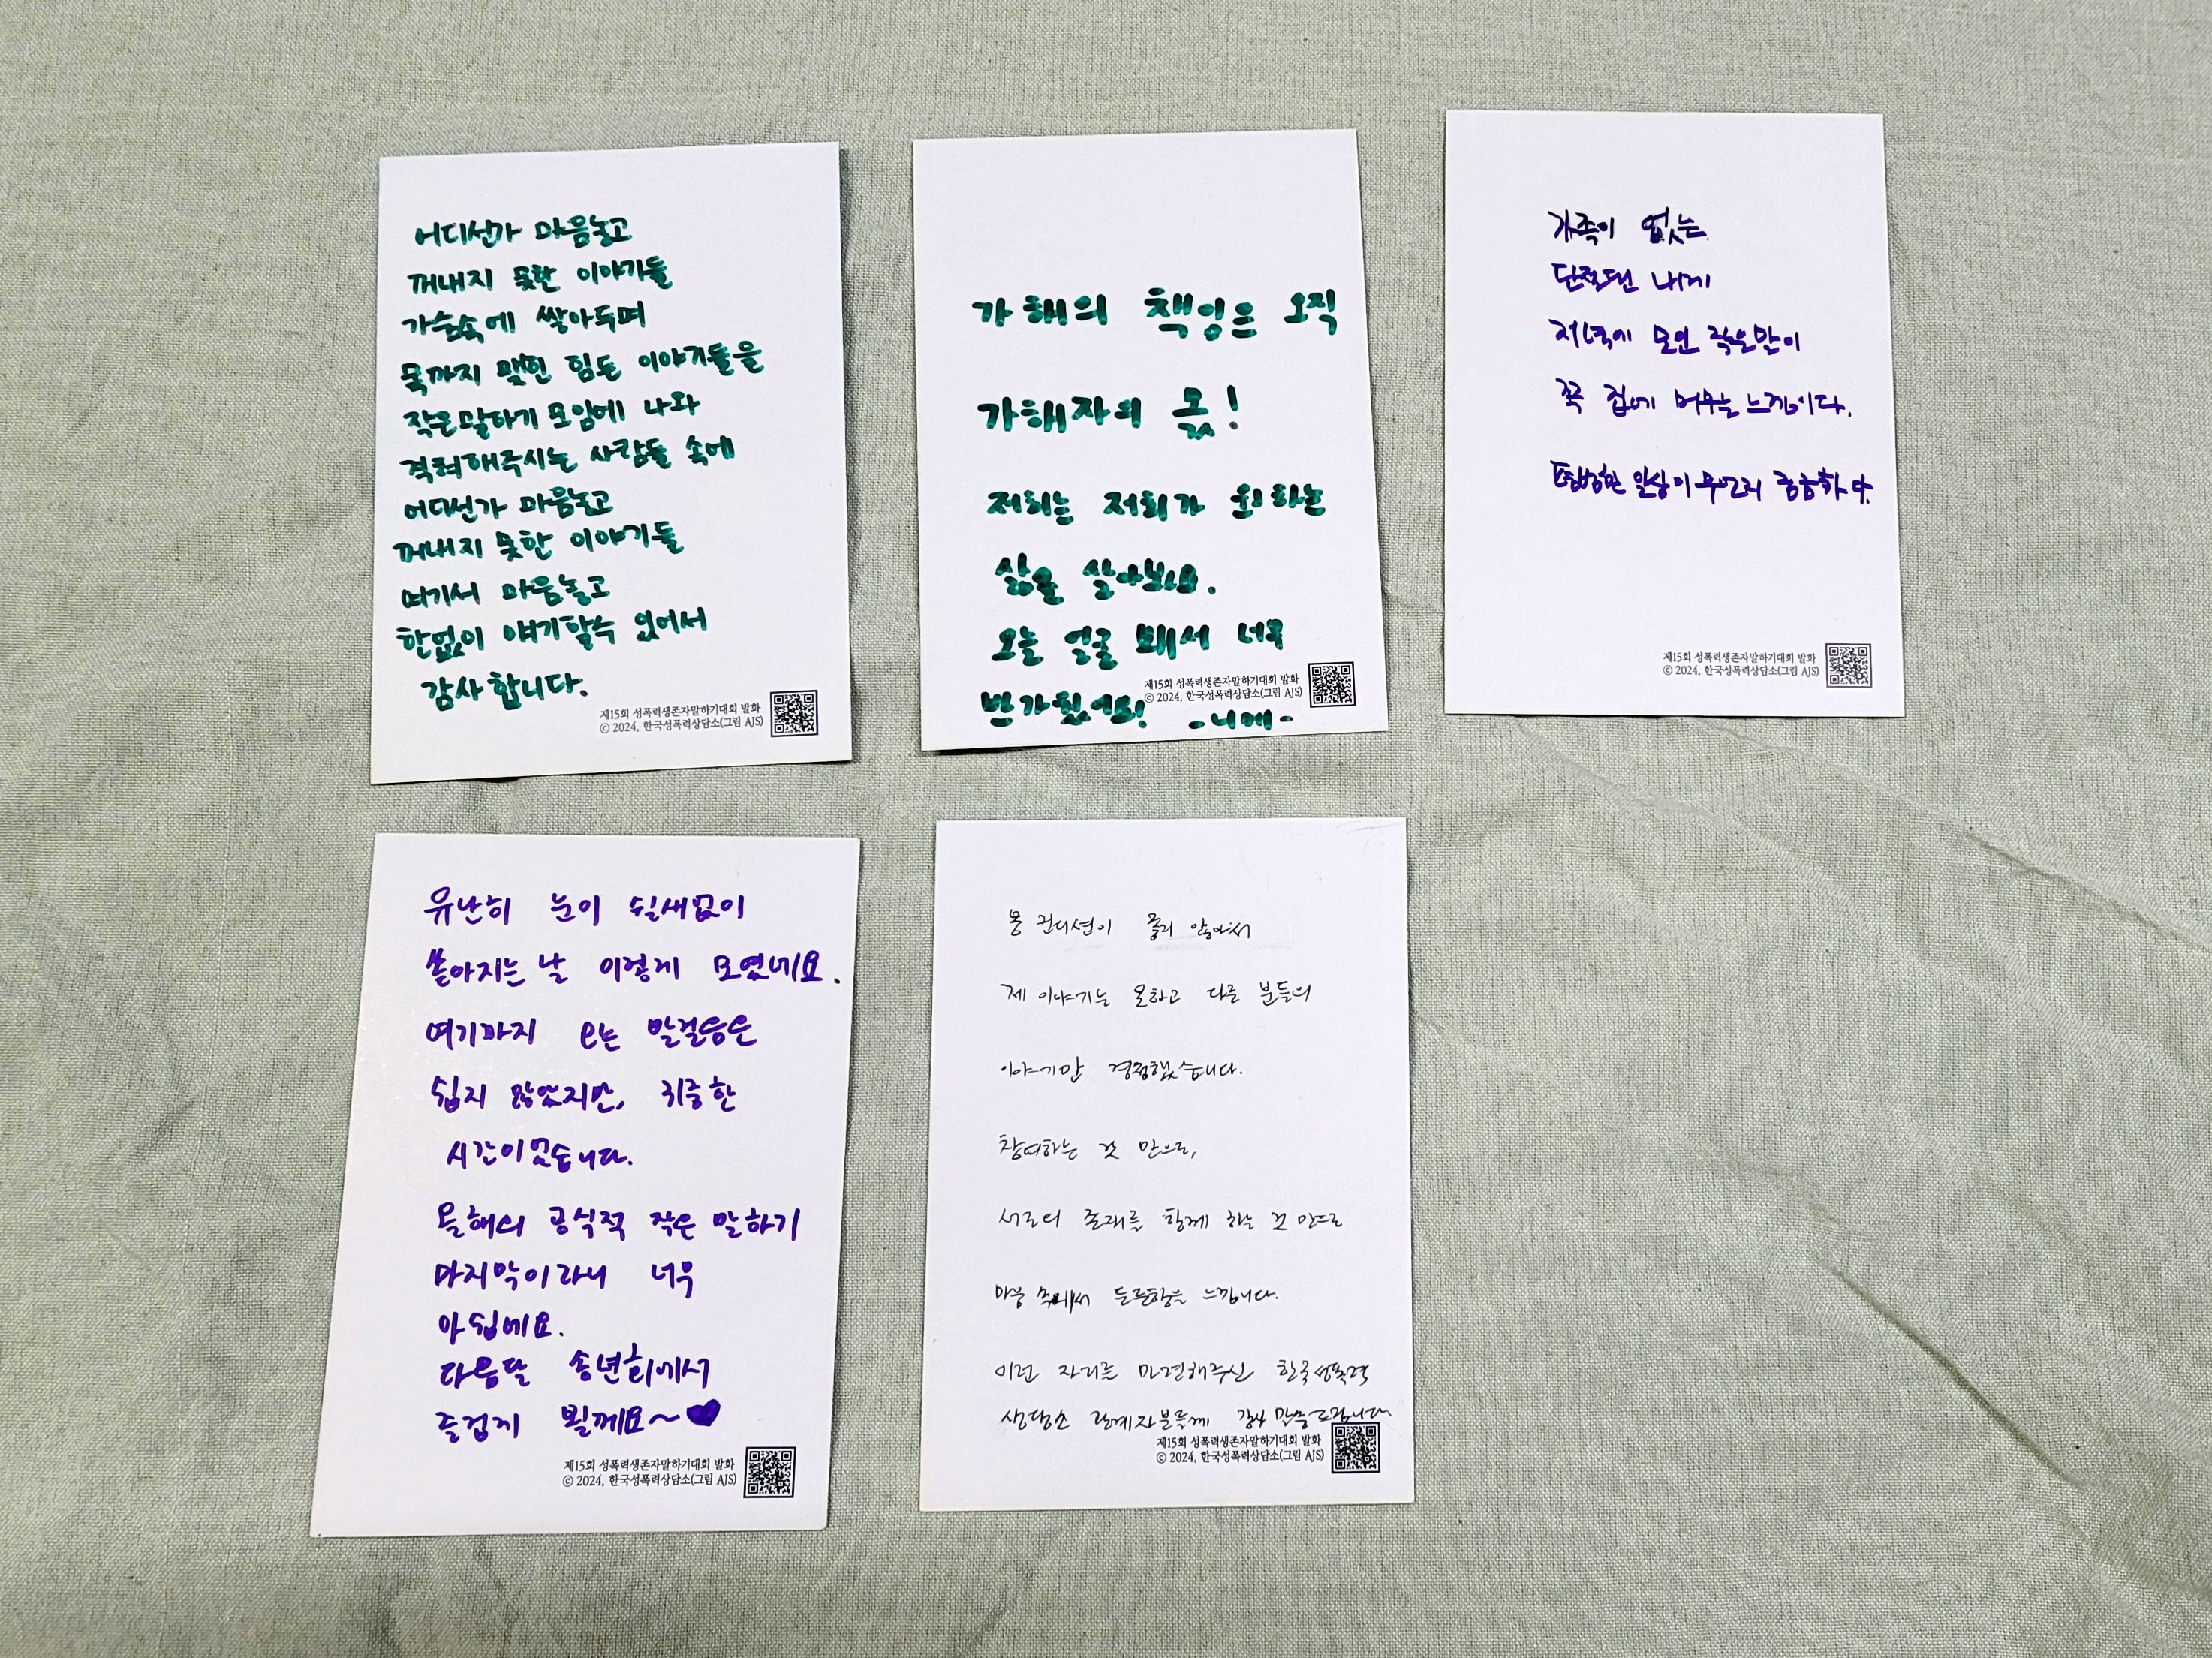 어디선가 마음놓고
꺼내지 못한 이야기들
가슴속에 쌓아두며
목까지 맺힌 힘든 이야기들을
작은말하기 모임에 나와
격려해주시는 사람들 속에
어디선가 마음놓고
꺼내지 못한 이야기들
여기서 마음놓고
한없이 얘기할수 있어서
감사합니다.
제15회 성폭력생존자말하기대회 발화
© 2024, 한국성폭력상담소(그림 AJS)
가해의 책임은 오직
가해자의 몫!
저희는 저희가 원하는
삶을 살아보아요.
오늘 얼굴 봬서 너무
반가웠어요!
제15회 성폭력생존자말하기대회 발화
© 2024, 한국성폭력상담소(그림 AJS)
가족이 없는
단절된 내게
저녁에 모인 작은말이
꼭 집에 머무는 느낌이다.
평범한 일상이
제15회 성폭력생존자말하기대회 발화
© 2024, 한국성폭력상담소(그림 AJS)
유난히 눈이 쉴새없이
쏟아지는 날 이렇게 모였네요.
여기까지 오는 발걸음은
쉽지 않았지만, 귀중한
시간이었습니다.
올해의 공식적 작은 말하기
마지막이라니 너무
아쉽네요.
다음달 송년회에서
즐겁게 뵐께요~♥
제15회 성폭력생존자말하기대회 발화
© 2024, 한국성폭력상담소(그림 AJS)
몸 컨디션이 좋지 않아서
제 이야기는 못하고 다른 분들의
이야기만 경청했습니다.
참여하는 것 만으로,
서로의 존재를 함께 하는 것 만으로
마음 속에서 든든함을 느낍니다.
이런 자리를 마련해주신 한국성폭력
상담소 관계자분들께 감사 말씀 드립니다
제15회 성폭력생존자말하기대회 발화
© 2024, 한국성폭력상담소(그림 AJS)